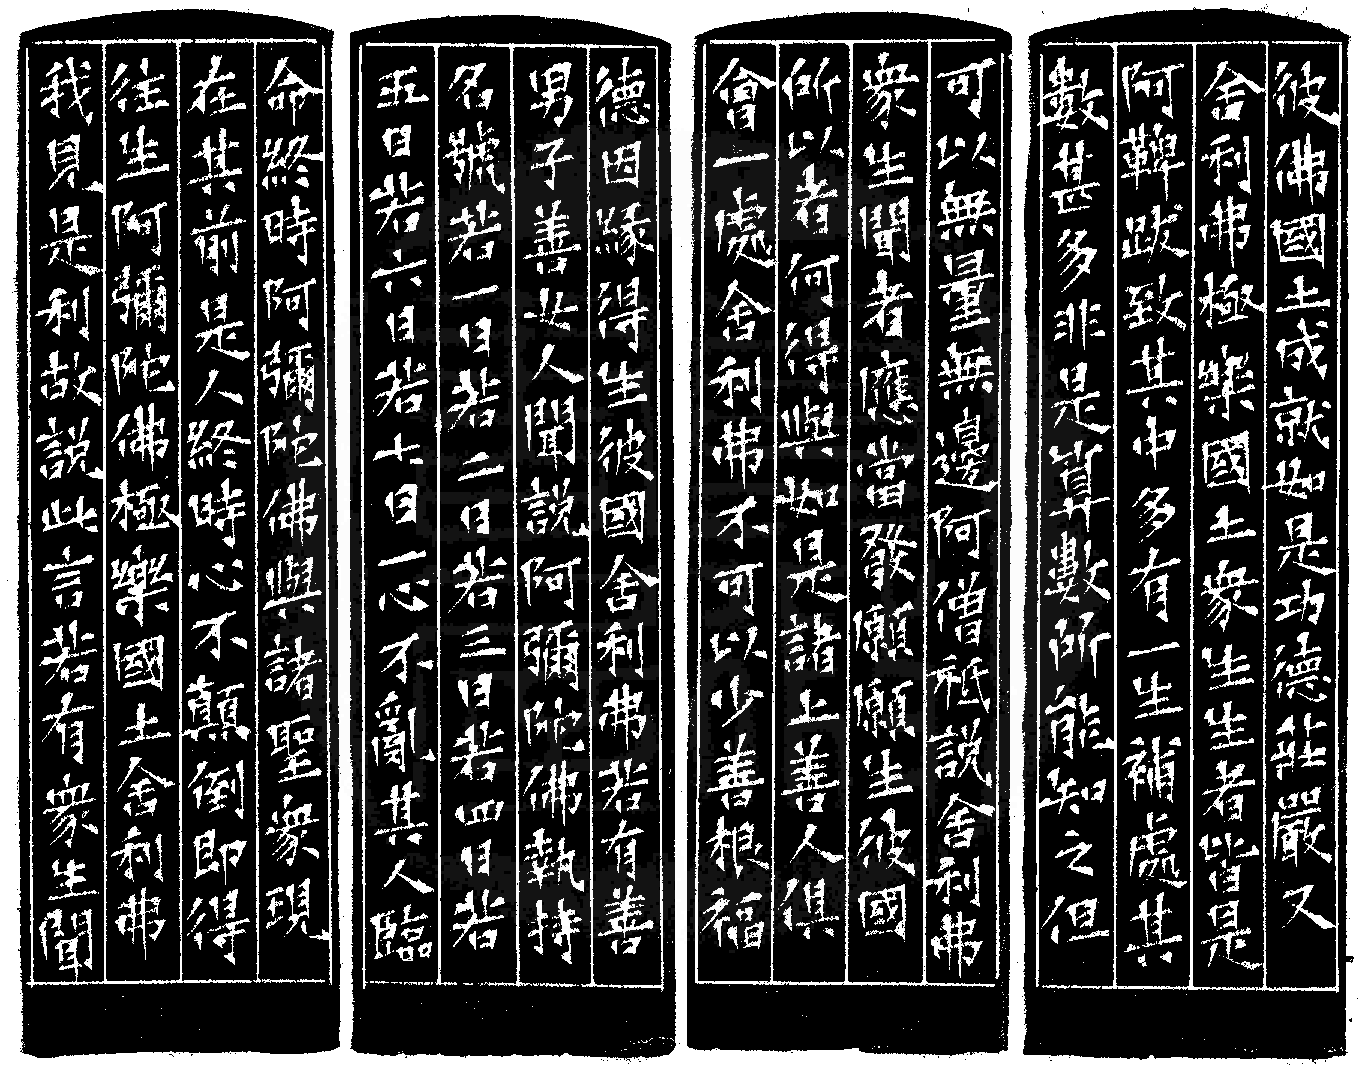 彼佛國土成就如是功德莊嚴又
舍利弗極樂國土衆生生者皆是
阿鞞跋致其中多有一生補處其
數甚多非是算數所能知之但
可以無量無邊阿僧祇說舍利弗
衆生聞者應當發願願生彼國
所以者何得與如是諸上善人俱
會一處舍利弗不可以少善根福
德因緣得生彼國舍利弗若有善
男子善女人聞說阿彌陀佛執持
名號若一日若二日若三日若四日若
五日若六日若七日一心不亂其人臨
命終時阿彌陀佛與諸聖衆現
在其前是人終時心不顛倒即得
往生阿彌陀佛極樂國土舍利弗
我見是利故說此言若有衆生聞